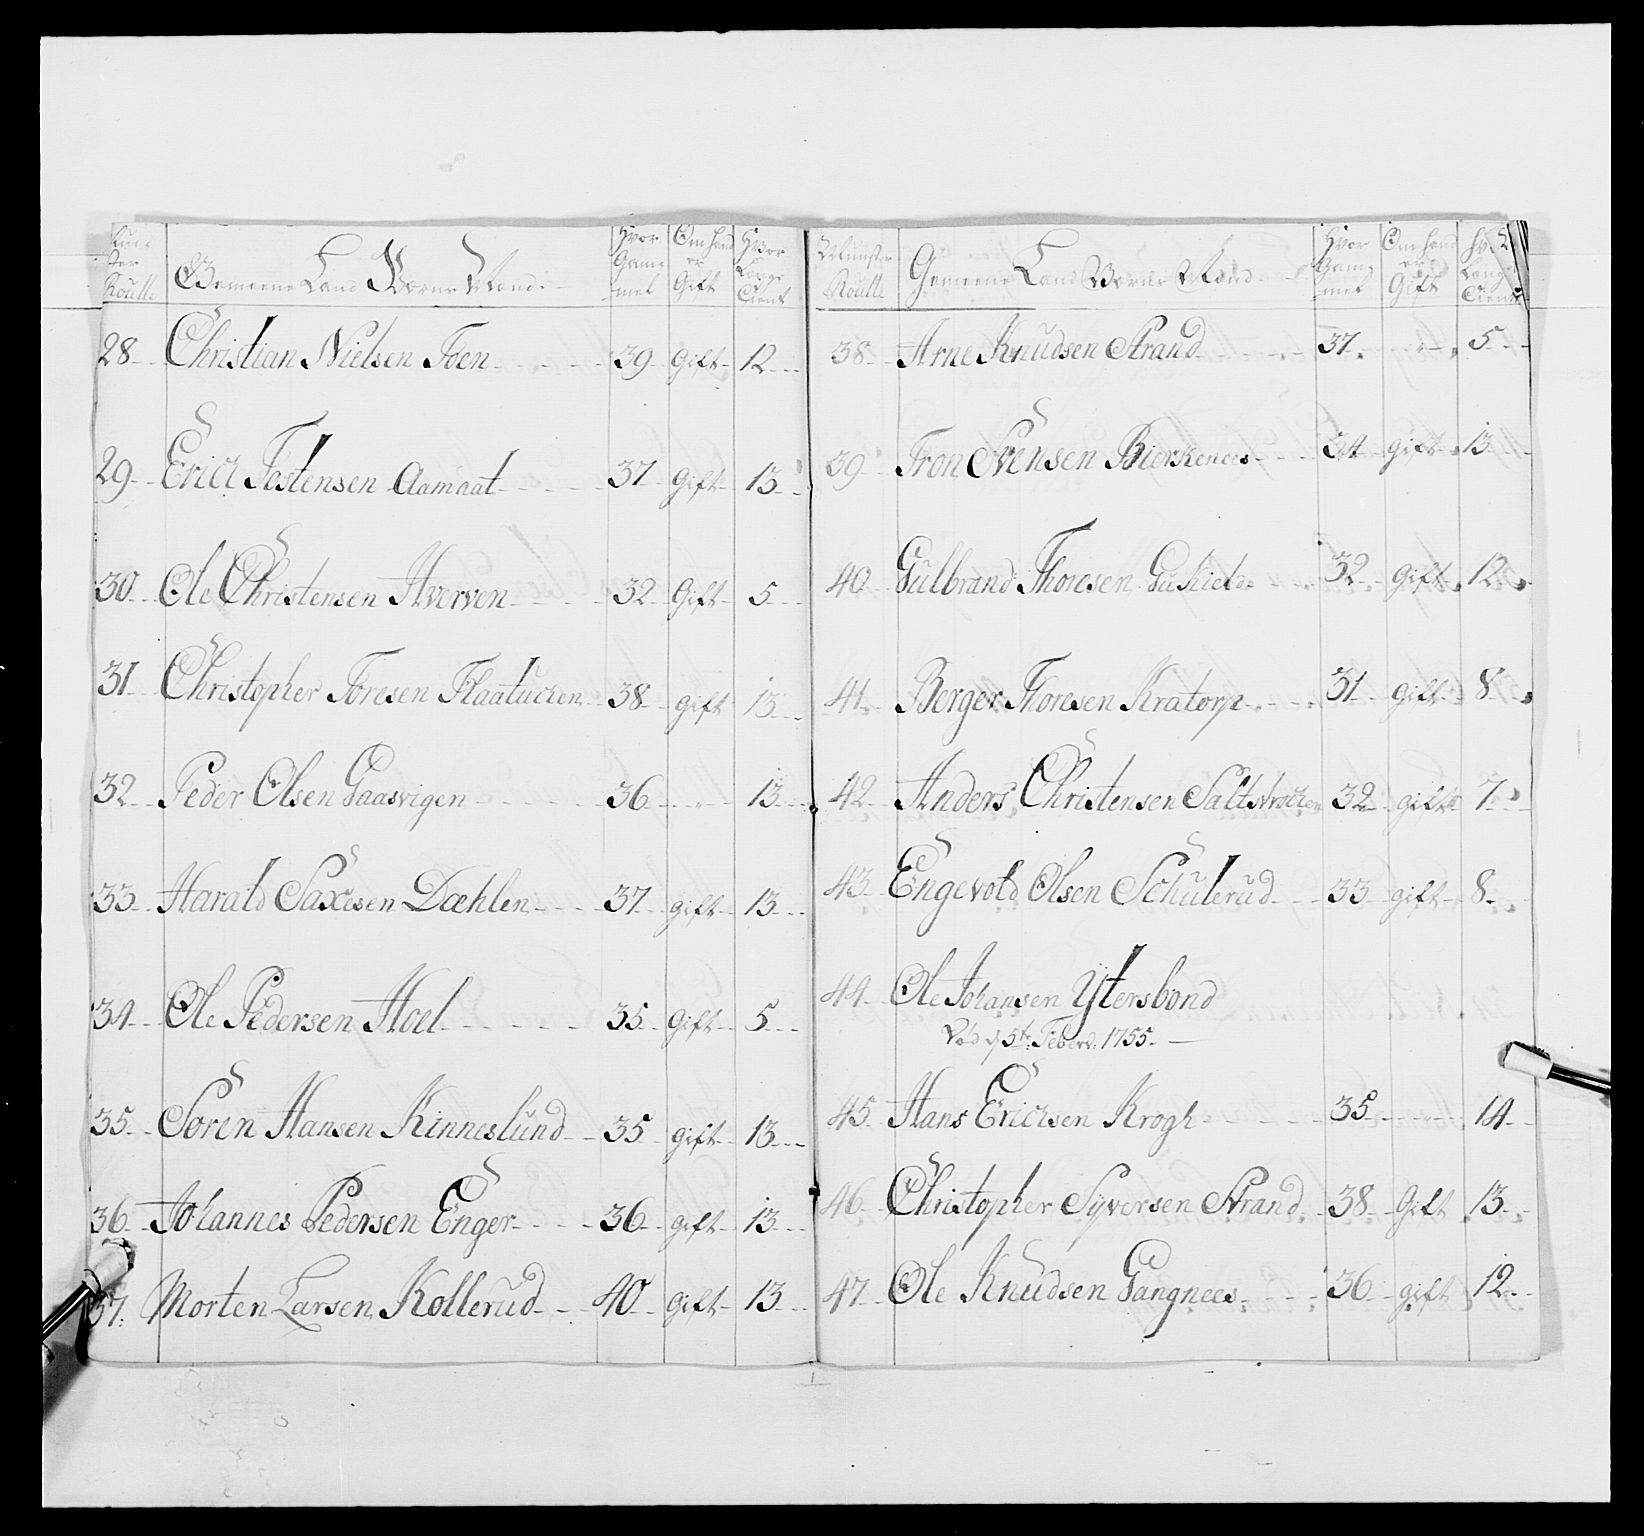 Mun-
ster
Roulle
Gemeene Land Værns Mand
Hvor
Gam-
mel
Om hand
er
Gift
Hvor
Længe
Tient
28 Christian Nielsen Foen 39 Gift 12
29 Erich Testensen Aamaat 37 Gift 13
30 Ole Christensen Hverven 32 Gift 5
31 Christopher Toresen Flaatuchen 38 gift 13
32 Peder Olsen Gaasvigen 36 13
33 Harald Saxesen Dæhlen 37 gift 13
34 Ole Pedersen Hoel 35 Gift 5
35 Søren Hansen Kinneslund 35 gift 13
36 Johannes Pedersen Enger 36 gift 13
37 Morten Larsen Kollerud 40 Gift 13
Munster
Roulle
Gemeene Land Værns Mand
Hvor
Gam-
mel
Om hand
er
Gift
Længe
Tient
38 Arne Knudsen Strand 37 5
39 Tron Svensen Bierkenees 34 gift 13
40 Gulbrand Thoresen 32 Gift 12
41 Berger Thoresen Kratorp 31 Gift 8
42 Anders Christensen 32 gift 7
43 Engevold Olsen Schulerud 33 gift 8
44 Ole Johansen Ytersbond
Død d 5te Feberv. 1755.
45 Hans Erichsen Krogh 35 14
46 Christopher Syversen Strand 38 Gift 13
47 Ole Knudsen Gangnees 36 gift 12